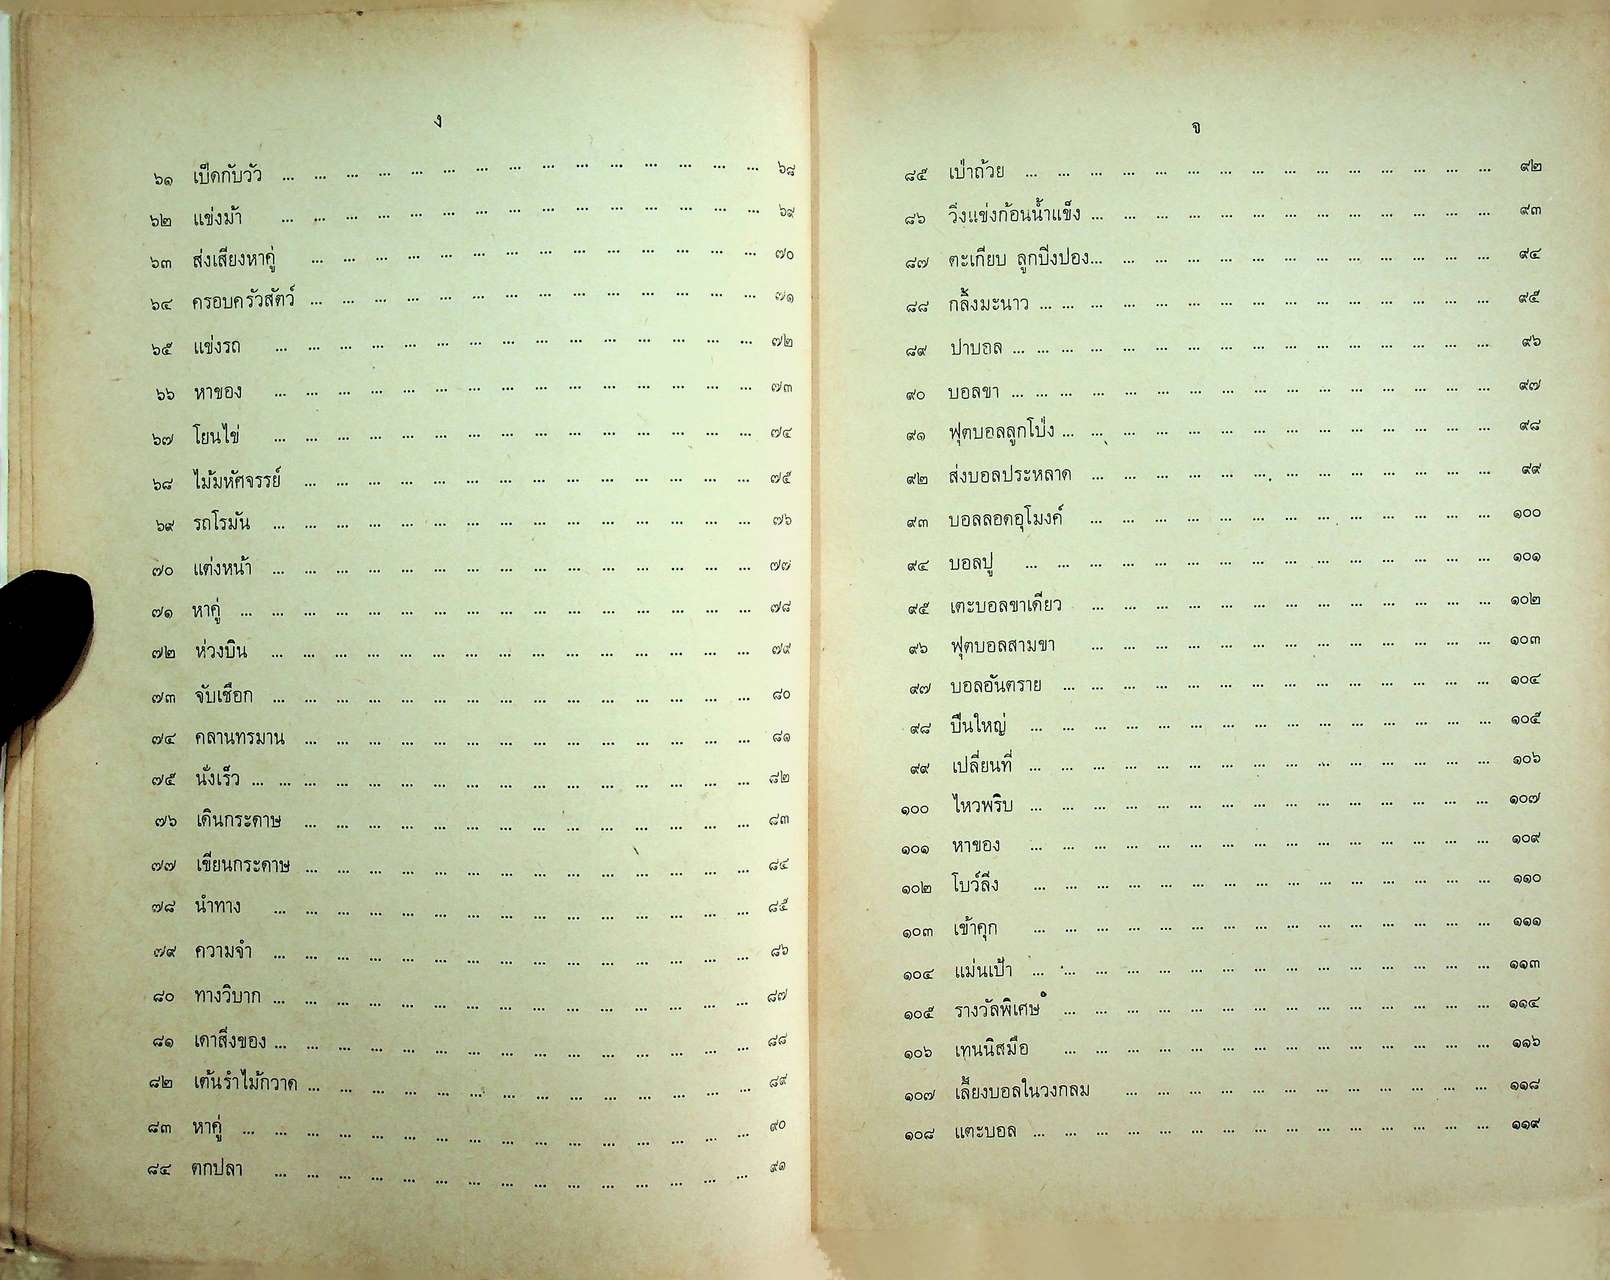 ง
๖๑ เป็ดกับวัว ... ... ... ... ... ... ... ... ... ... ... ... ... ... ... ๖๘
๖๒ แข่งม้า ... ... ... ... ... ... ... ... ... ... ... ... ... ... ... ๖๙
๖๓ ส่งเสียงหาคู่ ... ... ... ... ... ... ... ... ... ... ... ... ... ... ๗๐
๖๔ ครอบครัวสัตว์ ... ... ... ... ... ... ... ... ... ... ... ... ... ... ๗๑
๖๕ แข่งรถ ... ... ... ... ... ... ... ... ... ... ... ... ... ... ... ๗๒
๖๖ หาของ ... ... ... ... ... ... ... ... ... ... ... ... ... ... ... ๗๓
๖๗ โยนไข่ ... ... ... ... ... ... ... ... ... ... ... ... ... ... ... ๗๔
๖๘ ไม้มหัศจรรย์ ... ... ... ... ... ... ... ... ... ... ... ... ... ... ๗๕
๖๙ รถโรมัน ... ... ... ... ... ... ... ... ... ... ... ... ... ... ... ๗๖
๗๐ แต่งหน้า ... ... ... ... ... ... ... ... ... ... ... ... ... ... ... ๗๗
๗๑ หาคู่ ... ... ... ... ... ... ... ... ... ... ... ... ... ... ... ... ๗๘
๗๒ ห่วงบิน ... ... ... ... ... ... ... ... ... ... ... ... ... ... ... ๗๙
๗๓ จับเชือก ... ... ... ... ... ... ... ... ... ... ... ... ... ... ... ๘๐
๗๔ คลานทรมาน ... ... ... ... ... ... ... ... ... ... ... ... ... ... ๘๑
๗๕ นั่งเร็ว ... ... ... ... ... ... ... ... ... ... ... ... ... ... ... ... ๘๒
๗๖ เดินกระดาษ ... ... ... ... ... ... ... ... ... ... ... ... ... ... ๘๓
๗๗ เขียนกระดาษ ... ... ... ... ... ... ... ... ... ... ... ... ... ... ๘๔
๗๘ นำทาง ... ... ... ... ... ... ... ... ... ... ... ... ... ... ... ๘๕
๗๙ ความจำ ... ... ... ... ... ... ... ... ... ... ... ... ... ... ... ๘๖
๘๐ ทางวิบาก ... ... ... ... ... ... ... ... ... ... ... ... ... ... ... ๘๗
๘๑ เดาสิ่งของ ... ... ... ... ... ... ... ... ... ... ... ... ... ... ... ๘๘
๘๒ เต้นรำไม้กวาด ... ... ... ... ... ... ... ... ... ... ... ... ... ... ๘๙
๘๓ หาคู่ ... ... ... ... ... ... ... ... ... ... ... ... ... ... ... ... ๙๐
๘๔ ตกปลา ... ... ... ... ... ... ... ... ... ... ... ... ... ... ... ๙๑
จ
๘๕ เป่าถ้วย ... ... ... ... ... ... ... ... ... ... ... ... ... ... ... ๙๒
๘๖ วิ่งแข่งก้อนน้ำแข็ง ... ... ... ... ... ... ... ... ... ... ... ... ... ๙๓
๘๗ ตะเกียบ ลูกปิงปอง... ... ... ... ... ... ... ... ... ... ... ... ... ๙๔
๘๘ กลิ้งมะนาว ... ... ... ... ... ... ... ... ... ... ... ... ... ... ... ๙๕
๘๙ ปาบอล ... ... ... ... ... ... ... ... ... ... ... ... ... ... ... ... ๙๖
๙๐ บอลขา ... ... ... ... ... ... ... ... ... ... ... ... ... ... ... ... ๙๗
๙๑ ฟุตบอลลูกโป่ง ... ... ... ... ... ... ... ... ... ... ... ... ... ... ๙๘
๙๒ ส่งบอลประหลาด ... ... ... ... ... ... ... ... ... ... ... ... ... ๙๙
๙๓ บอลลอดอุโมงค์ ... ... ... ... ... ... ... ... ... ... ... ... ... ๑๐๐
๙๔ บอลปู ... ... ... ... ... ... ... ... ... ... ... ... ... ... ... ๑๐๑
๙๕ เตะบอลขาเดียว ... ... ... ... ... ... ... ... ... ... ... ... ... ๑๐๒
๙๖ ฟุตบอลสามขา ... ... ... ... ... ... ... ... ... ... ... ... ... ๑๐๓
๙๗ บอลอันตราย ... ... ... ... ... ... ... ... ... ... ... ... ... ... ๑๐๔
๙๘ ปืนใหญ่ ... ... ... ... ... ... ... ... ... ... ... ... ... ... ... ๑๐๕
๙๙ เปลี่ยนที่ ... ... ... ... ... ... ... ... ... ... ... ... ... ... ... ๑๐๖
๑๐๐ ไหวพริบ ... ... ... ... ... ... ... ... ... ... ... ... ... ... ... ๑๐๗
๑๐๑ หาของ ... ... ... ... ... ... ... ... ... ... ... ... ... ... ... ๑๐๙
๑๐๒ โบว์ลิ่ง ... ... ... ... ... ... ... ... ... ... ... ... ... ... ... ๑๑๐
๑๐๓ เข้าคุก ... ... ... ... ... ... ... ... ... ... ... ... ... ... ... ๑๑๑
๑๐๔ แม่นเป้า ... ... ... ... ... ... ... ... ... ... ... ... ... ... ... ๑๑๓
๑๐๕ รางวัลพิเศษ ... ... ... ... ... ... ... ... ... ... ... ... ... ... ๑๑๔
๑๐๖ เทนนิสมือ ... ... ... ... ... ... ... ... ... ... ... ... ... ... ๑๑๖
๑๐๗ เลี้ยงบอลในวงกลม ... ... ... ... ... ... ... ... ... ... ... ... ๑๑๘
๑๐๘ แตะบอล ... ... ... ... ... ... ... ... ... ... ... ... ... ... ... ๑๑๙